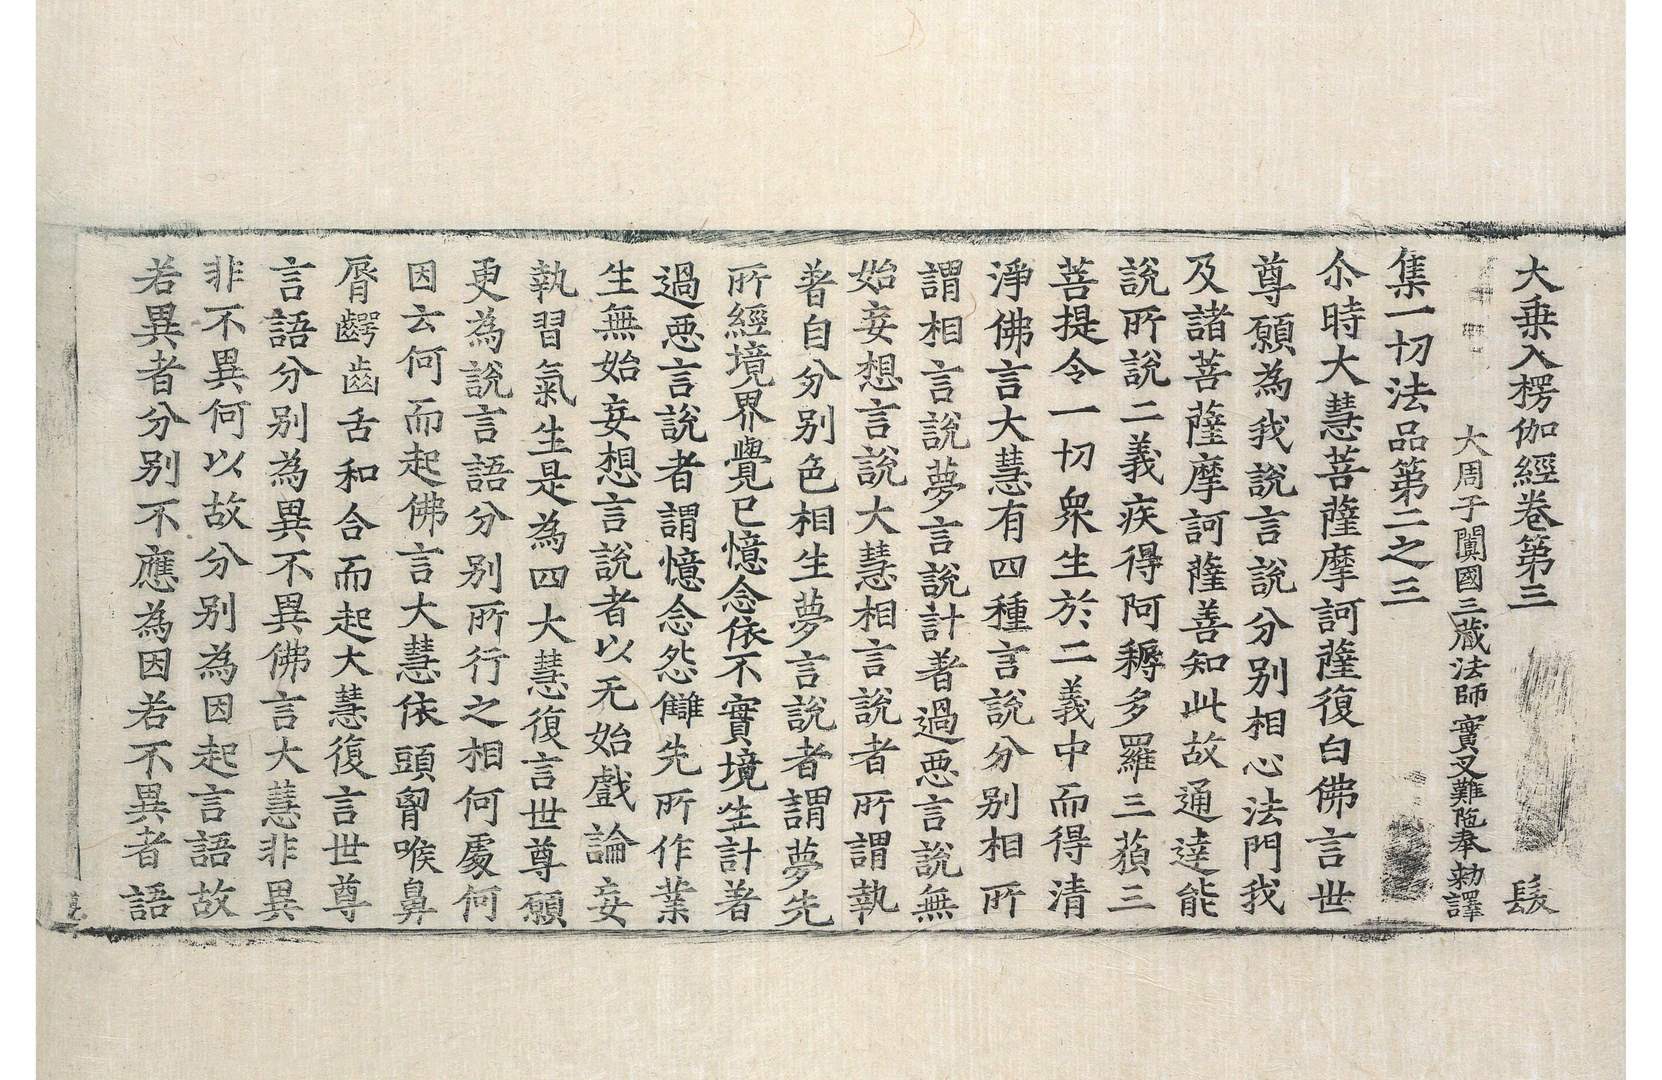 大乗入楞伽經卷第三 髲
大周于闐國三藏法師實叉難陁奉 勑譯
集一切法品第二之三
尒時大慧菩薩摩訶薩復白佛言世
尊願為我說言說分别相心法門我
及諸菩薩摩訶薩善知此故通達能
說所說二義疾得阿耨多羅三藐三
菩提令一切衆生於二義中而得清
淨佛言大慧有四種言說分别相所
謂相言說夢言說計著過惡言說無
始妄想言說大慧相言說者所謂執
著自分别色相生夢言說者謂夢先
所經境界覺已憶念依不實境生計著
過惡言說者謂憶念怨讎先所作業
生無始妄想言說者以无始戲論妄
執習氣生是為四大慧復言世尊願
更為說言語分别所行之相何處何
因云何而起佛言大慧依頭胷喉鼻
脣齶齒舌和合而起大慧復言世尊
言語分别為異不異佛言大慧非異
非不異何以故分别為因起言語故
若異者分别不應為因若不異者語